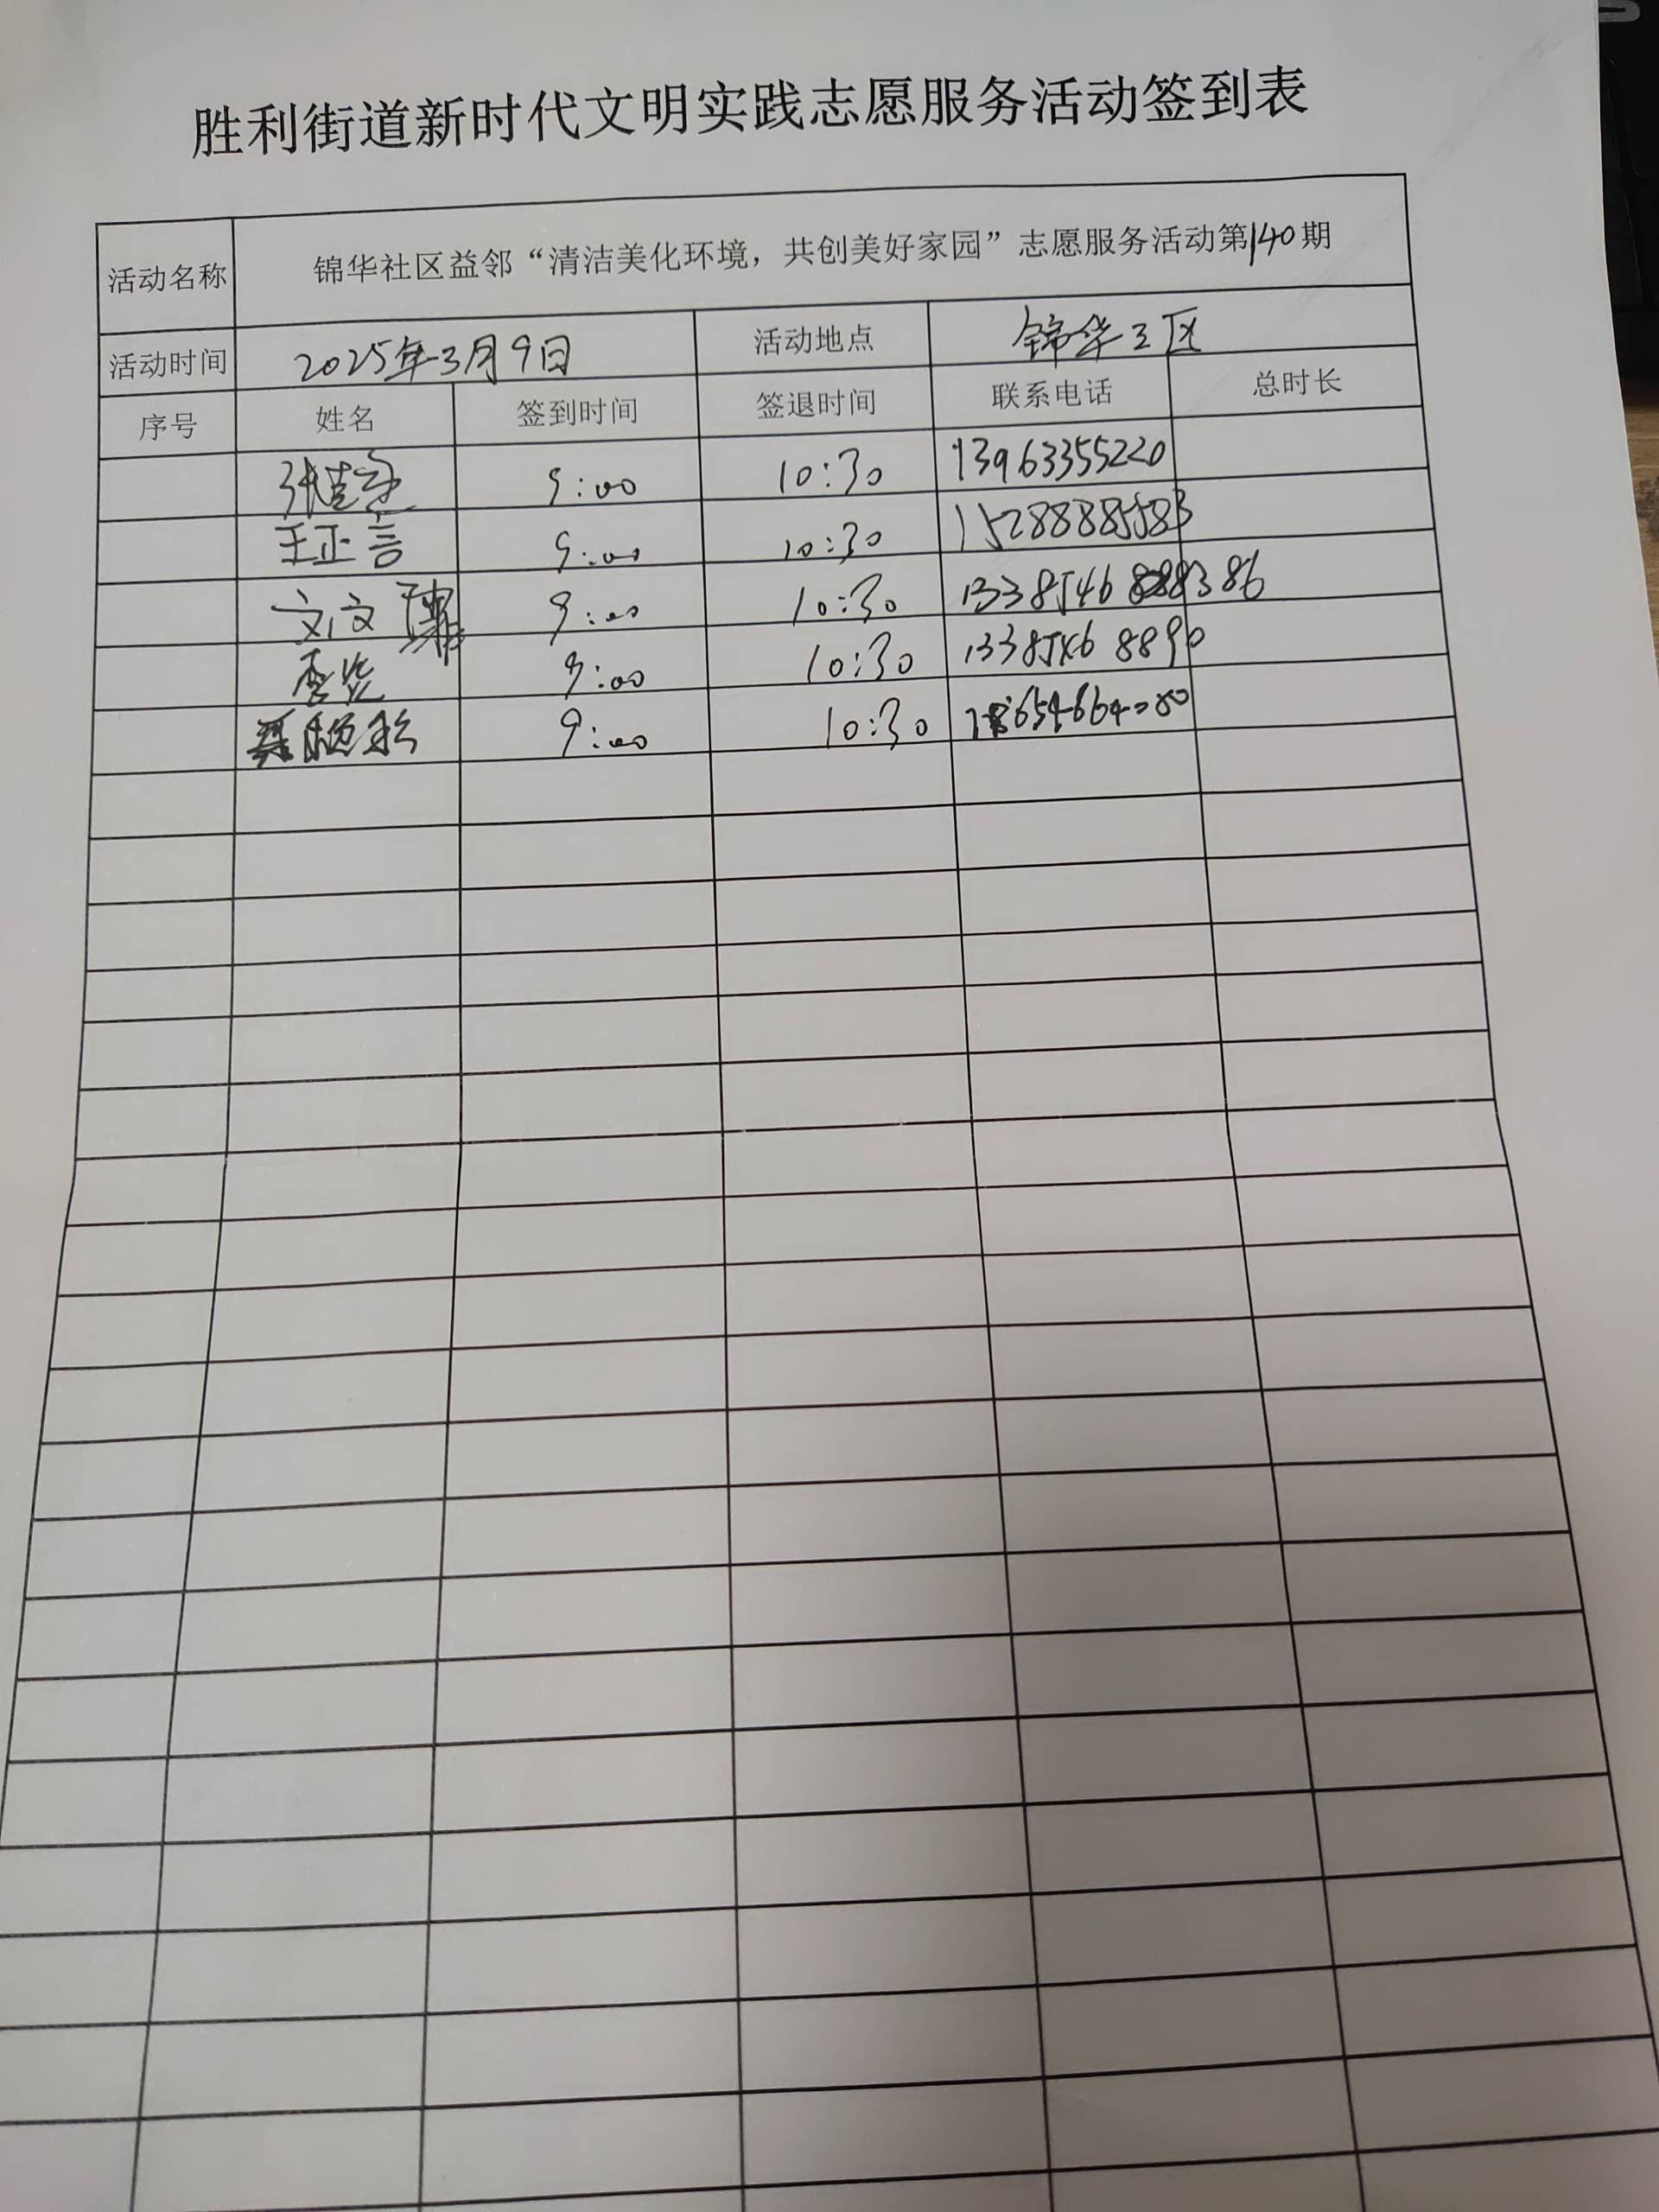 胜利街道新时代文明实践志愿服务活动签到表
活动名称 锦华社区益邻“清洁美化环境，共创美好家园”志愿服务活动第140期
活动时间 2025年3月9日 活动地点 锦华三区
序号 姓名 签到时间 签退时间 联系电话 总时长
9:00 10:30 13963355220
王正言 9:00 10:30 15288885583
9:00 10:30
9:00 10:30 13385468890
9:00 10:30